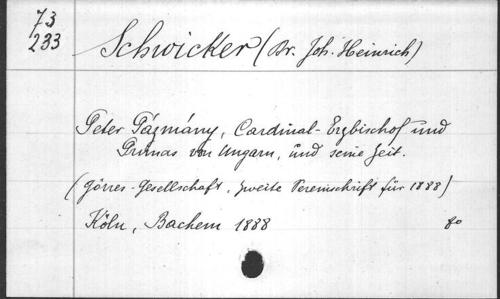 73
233
Schwicker (Dr. Joh. Heinrich)
Peter Pázmány, Cardinal-Erzbischof und
Primas von Ungarn, und seine Zeit.
(Görres-Gesellschaft, zweite Vereinsschrift für 1888)
Köln, Bachem 1888 8o